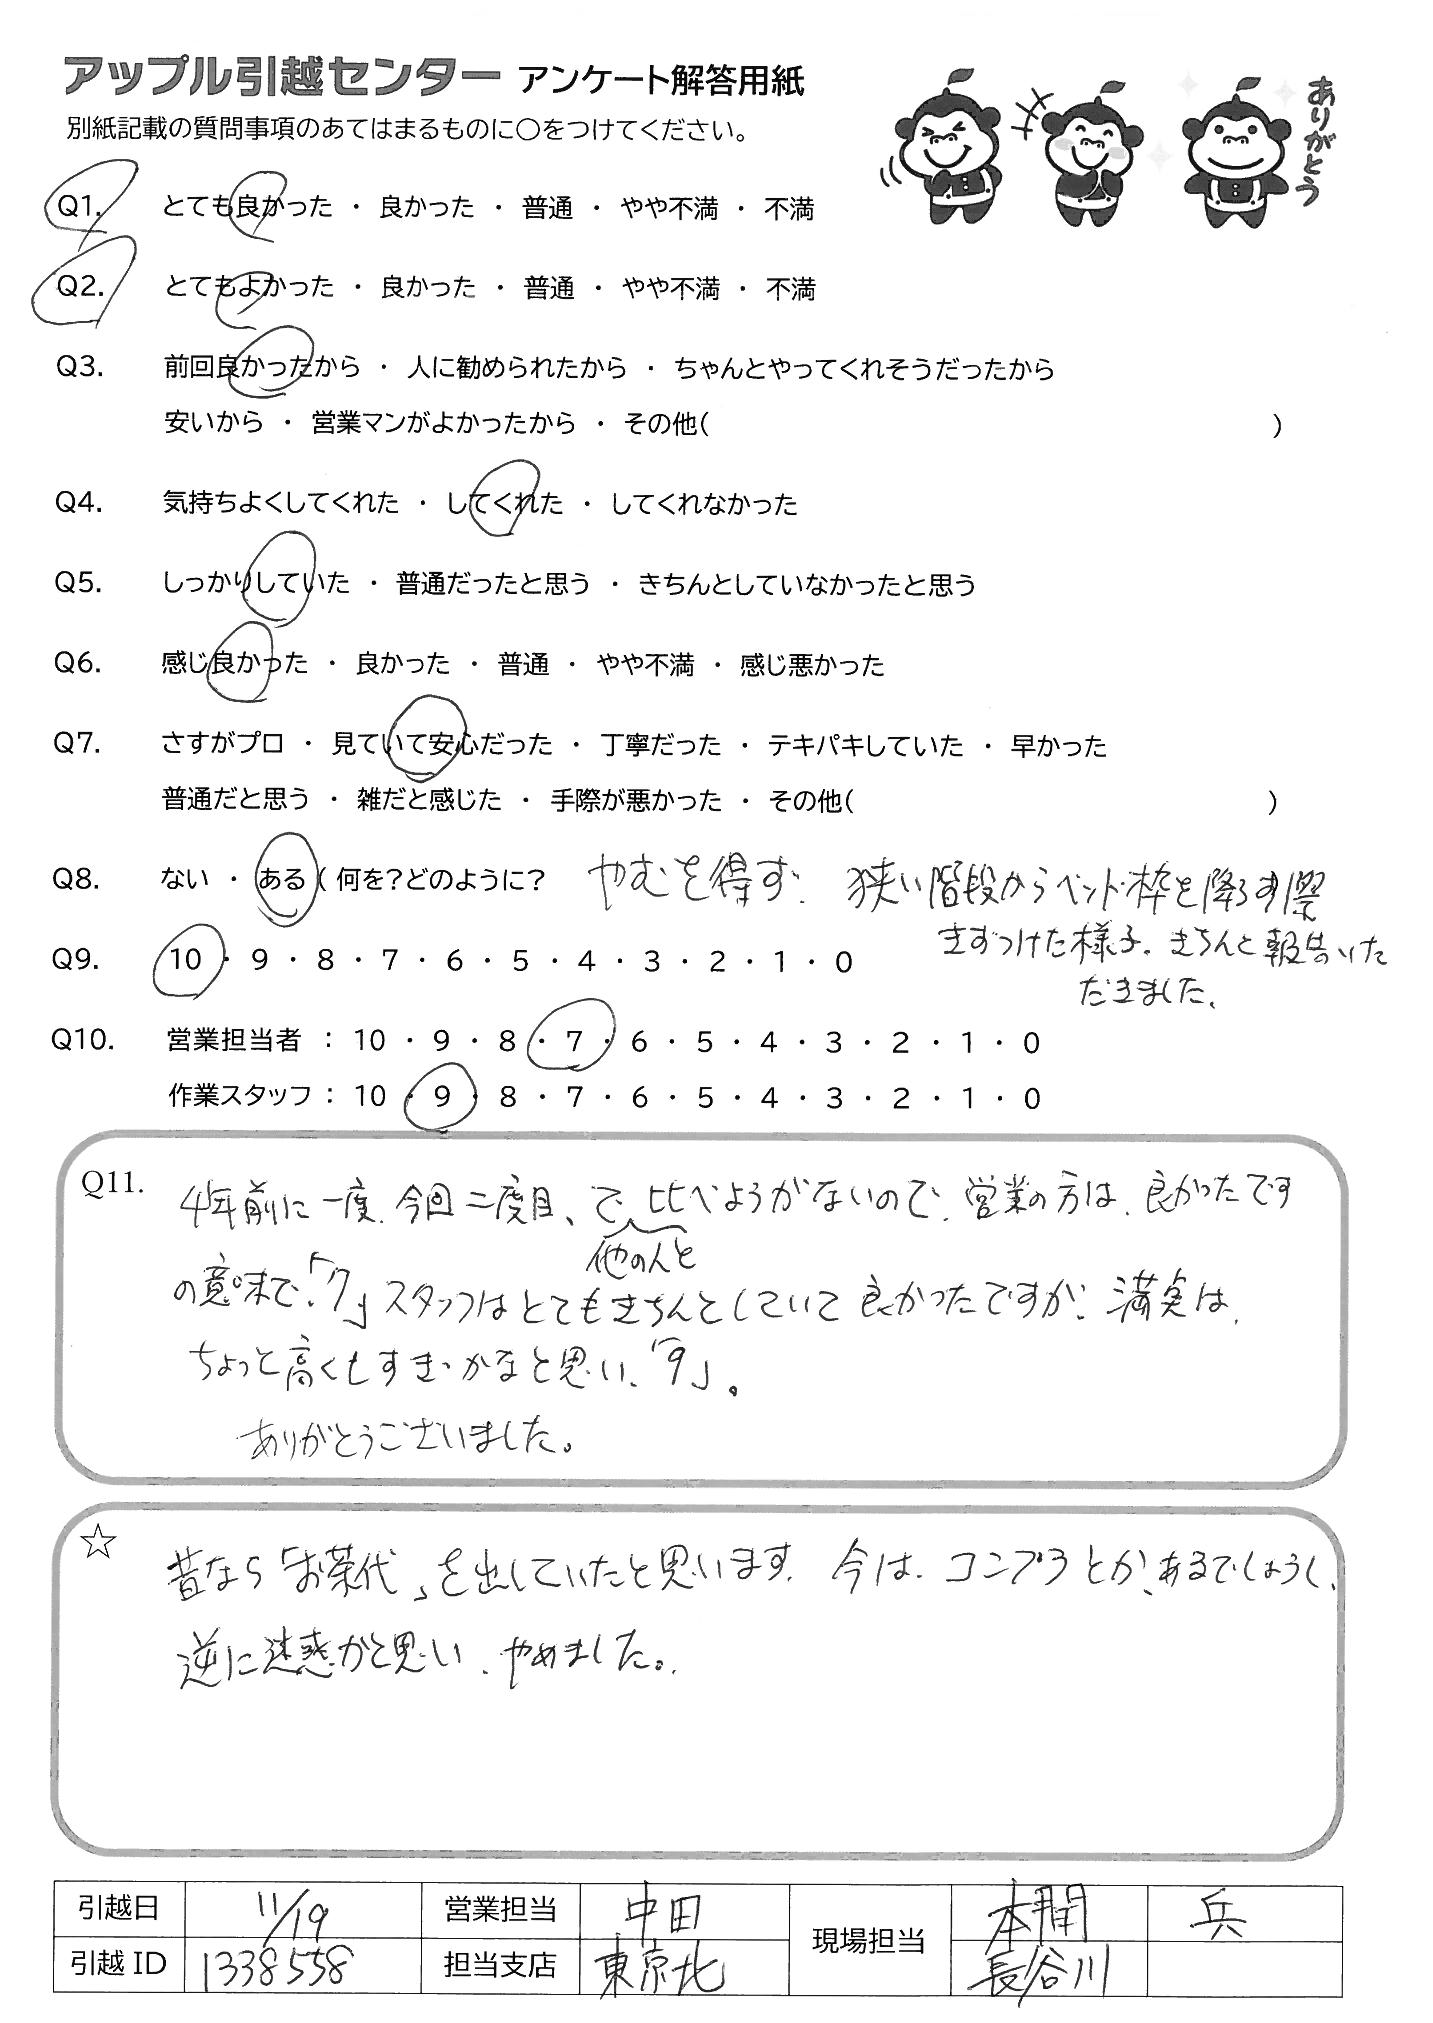 アップル引越センター アンケート解答用紙
別紙記載の質問事項のあてはまるものに〇をつけてください。
ありがとう
Q1. とても良かった ・ 良かった ・ 普通 ・ やや不満 ・ 不満
Q2. とてもよかった ・ 良かった ・ 普通 ・ やや不満 ・ 不満
Q3. 前回良かったから ・ 人に勧められたから ・ ちゃんとやってくれそうだったから
安いから ・ 営業マンがよかったから ・ その他( )
Q4. 気持ちよくしてくれた ・ してくれた ・ してくれなかった
Q5. しっかりしていた ・ 普通だったと思う ・ きちんとしていなかったと思う
Q6. 感じ良かった ・ 良かった ・ 普通 ・ やや不満 ・ 感じ悪かった
Q7. さすがプロ ・ 見ていて安心だった ・ 丁寧だった ・ テキパキしていた ・ 早かった
普通だと思う ・ 雑だと感じた ・ 手際が悪かった ・ その他( )
Q8. ない ・ ある ( 何を?どのように? やむを得ず、狭い階段からベッド枠を降ろす際
きずつけた様子。きちんと報告いた
だきました。
Q9. 10 ・ 9 ・ 8 ・ 7 ・ 6 ・ 5 ・ 4 ・ 3 ・ 2 ・ 1 ・ 0
Q10. 営業担当者 : 10 ・ 9 ・ 8 ・ 7 ・ 6 ・ 5 ・ 4 ・ 3 ・ 2 ・ 1 ・ 0
作業スタッフ : 10 ・ 9 ・ 8 ・ 7 ・ 6 ・ 5 ・ 4 ・ 3 ・ 2 ・ 1 ・ 0
Q11. 4年前に一度、今回二度目、で、比べようがないので、営業の方は、良かったです
他の人と
の意味で、「7」スタッフはとてもきちんとしていて良かったですが、満点は、
ちょっと高くもすぎかなと思い、「9」。
ありがとうございました。
☆ 昔なら「お茶代」を出していたと思います。今は、コンプラとか、あるでしょうし、
逆に迷惑かと思い、やめました。
引越日 11/19 営業担当 中田 現場担当 本間 兵
引越 ID 1338558 担当支店 東京北 長谷川